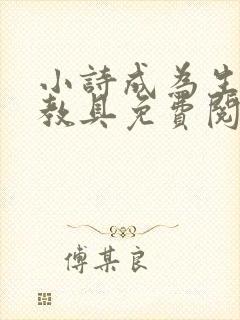 小詩成為生
教具免費閱
傅某良